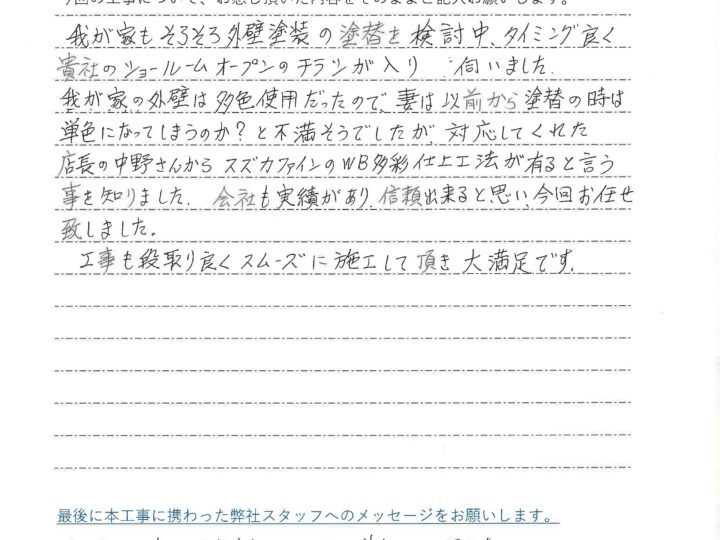 今回の工事について、お感じ頂いた内容をそのままご記入お願いします。
我が家もそろそろ外壁塗装の塗替を検討中、タイミング良く
貴社のショールームオープンのチラシが入り 伺いました.
我が家の外壁は多色使用だったので、妻は以前から塗替の時は
単色になってしまうのか?と不満そうでしたが、対応してくれた
店長の中野さんからスズカファインのWB多彩仕上工法が有ると言う
事を知りました. 会社も実績があり、信頼出来ると思い、今回お任せ
致しました。
工事も段取り良くスムーズに施工して頂き大満足です.
最後に本工事に携わった弊社スタッフへのメッセージをお願いします。